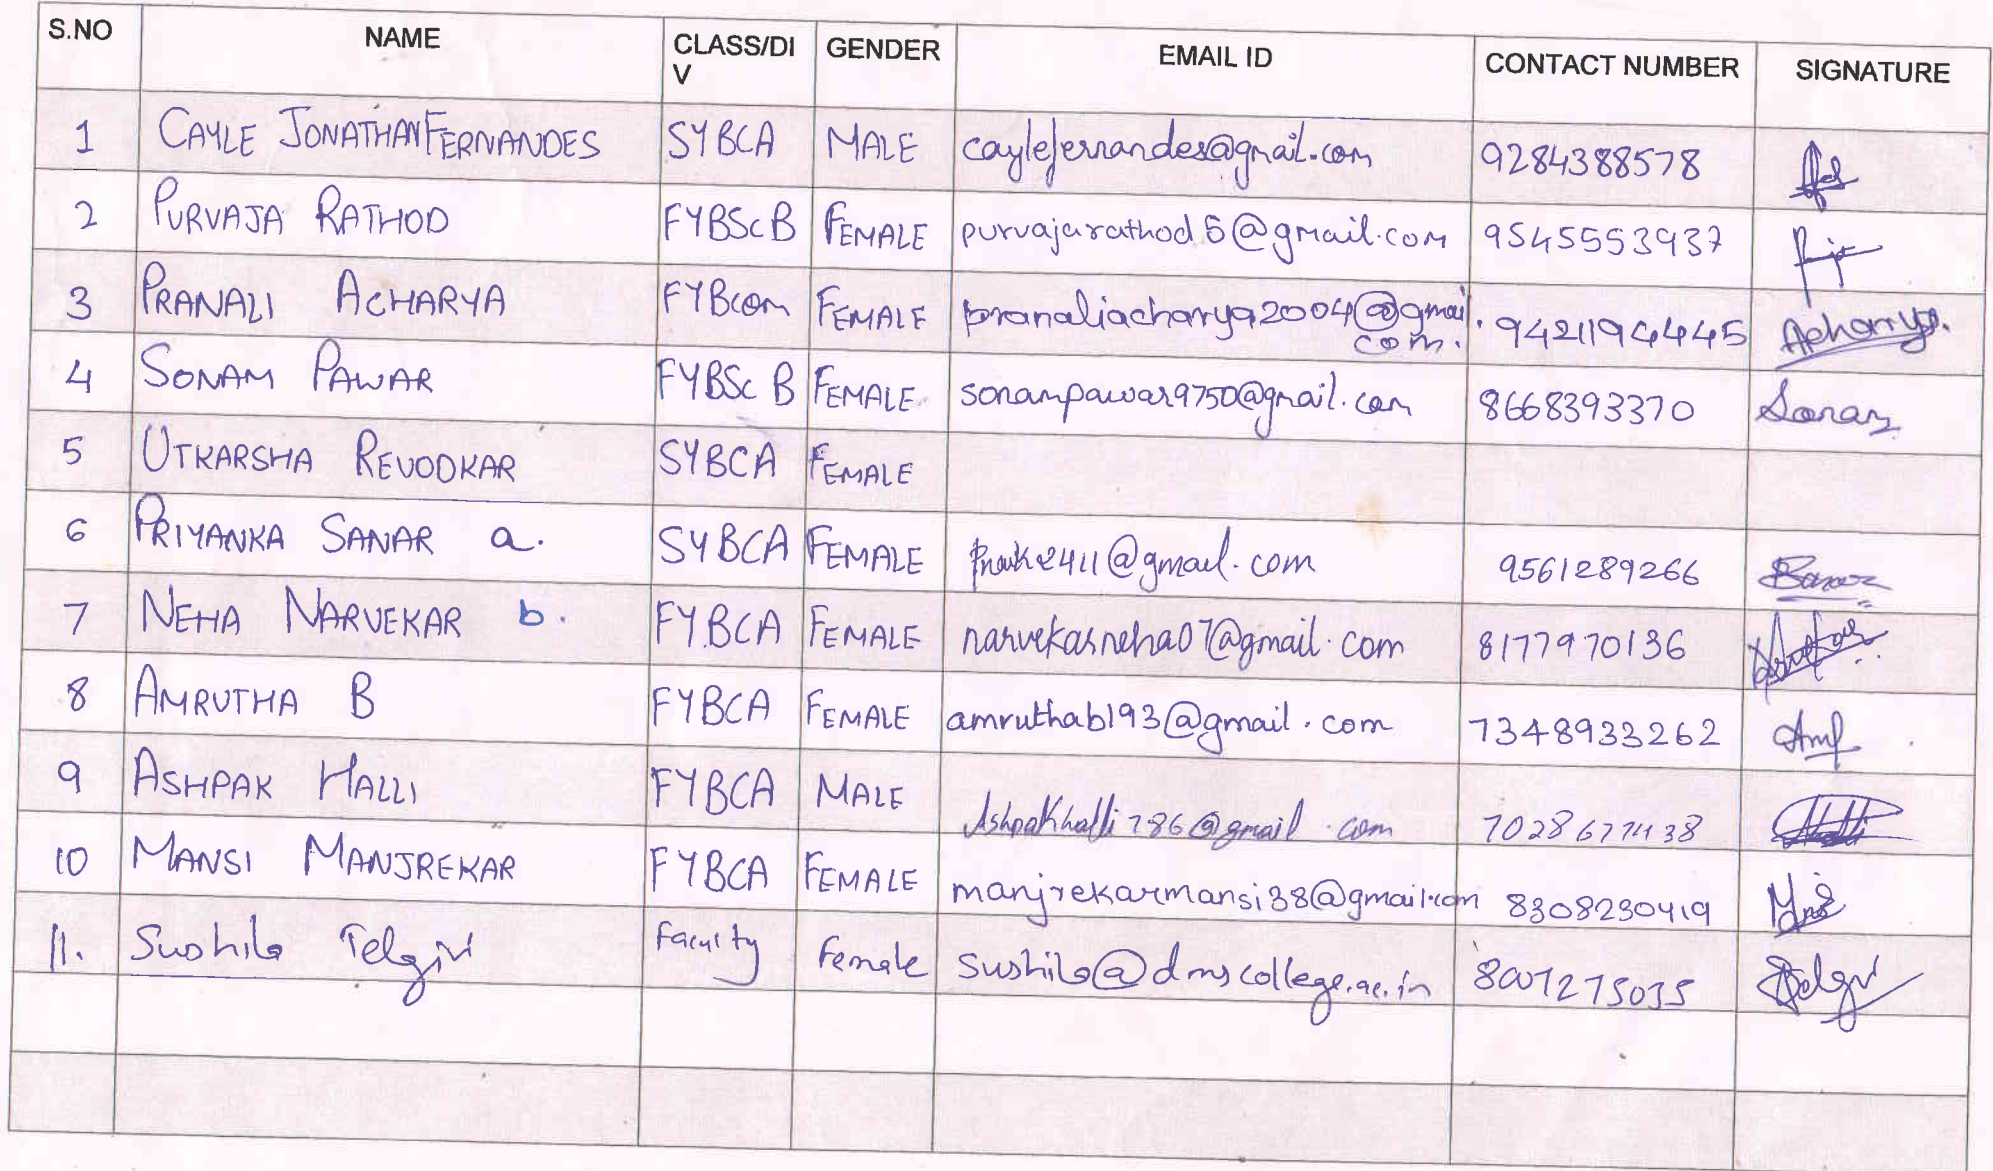 S.NO NAME CLASS/DI V GENDER EMAIL ID CONTACT NUMBER SIGNATURE
1 CAYLE JONATHAN FERNANDES SYBCA MALE caylefernandes@gmail.com 9284388578
2 PURVAJA RATHOD FYBSc B FEMALE purvajarathod5@gmail.com 9545553937
3 PRANALI ACHARYA FYBcom FEMALE pranaliacharya2004@gmail. com. 9421194445 Acharya.
4 SONAM PAWAR FYBSc B FEMALE sonampawar9750@gmail.com 8668393370 Sonam
5 UTKARSHA REVODKAR SYBCA FEMALE
6 PRIYANKA SANAR a. SYBCA FEMALE 9561289266
7 NEHA NARVEKAR b. FYBCA FEMALE narvekarneha07@gmail.com 8177970136
8 AMRUTHA B FYBCA FEMALE amruthab193@gmail.com 7348933262
9 ASHPAK HALLI FYBCA MALE Ashpakhalli786@gmail.com
10 MANSI MANJREKAR FYBCA FEMALE manjrekarmansi38@gmail.com 8308230419
11. Sushila Telgiri Faculty Female sushila@dmscollege.ac.in 8007275035